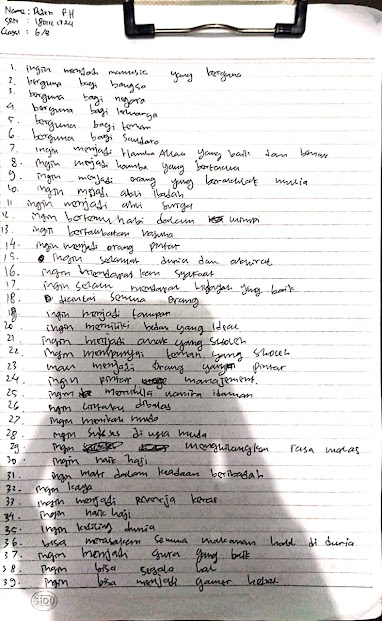 Name: PH
SRN :
Class : 6/B
1. ingin menjadi manusia yang berguna
2. berguna bagi bangsa
3. berguna bagi negara
4. berguna bagi keluarga
5. berguna bagi teman
6. berguna bagi saudara
7. ingin menjadi Hamba Allah yang baik dan benar
8. ingin menjadi hamba yang bertaqwa
9. ingin menjadi orang yang berakhlak mulia
10. ingin mejadi ahli ibadah
11 ingin menjadi ahli surga
12. Ingin bertemu nabi dalam mimpi
13. ingin
14. ingin menjadi orang pintar
15. ingin selamat dunia dan akhirat
16. ingin mendapatkan syafaat
17. ingin selalu mendapat yang baik
18. dicintai semua orang
19. ingin menjadi tampan
20. ingin memiliki badan yang ideal
21. ingin menjadi anak yang sholeh
22. ingin mempunyai teman yang sholeh
23 mau menjadi orang yang pintar
24. ingin pintar manajement.
25. ingin memiliki wanita idaman
26 ingin cintaku dibalas
27 ingin menikah muda
28 ingin sukses di usia muda
29 ingin menghilangkan rasa malas
30 ingin naik haji
31. ingin mati dalam keadaan beribadah
32. ingin kaya
33. ingin menjadi pekerja keras
34. ingin naik haji
35. ingin keliling dunia
36. bisa merasakan semua makanan halal di dunia
37. ingin menjadi guru yang baik
38. ingin bisa segala hal
39. ingin bisa menjadi gamer hebat
SIDU